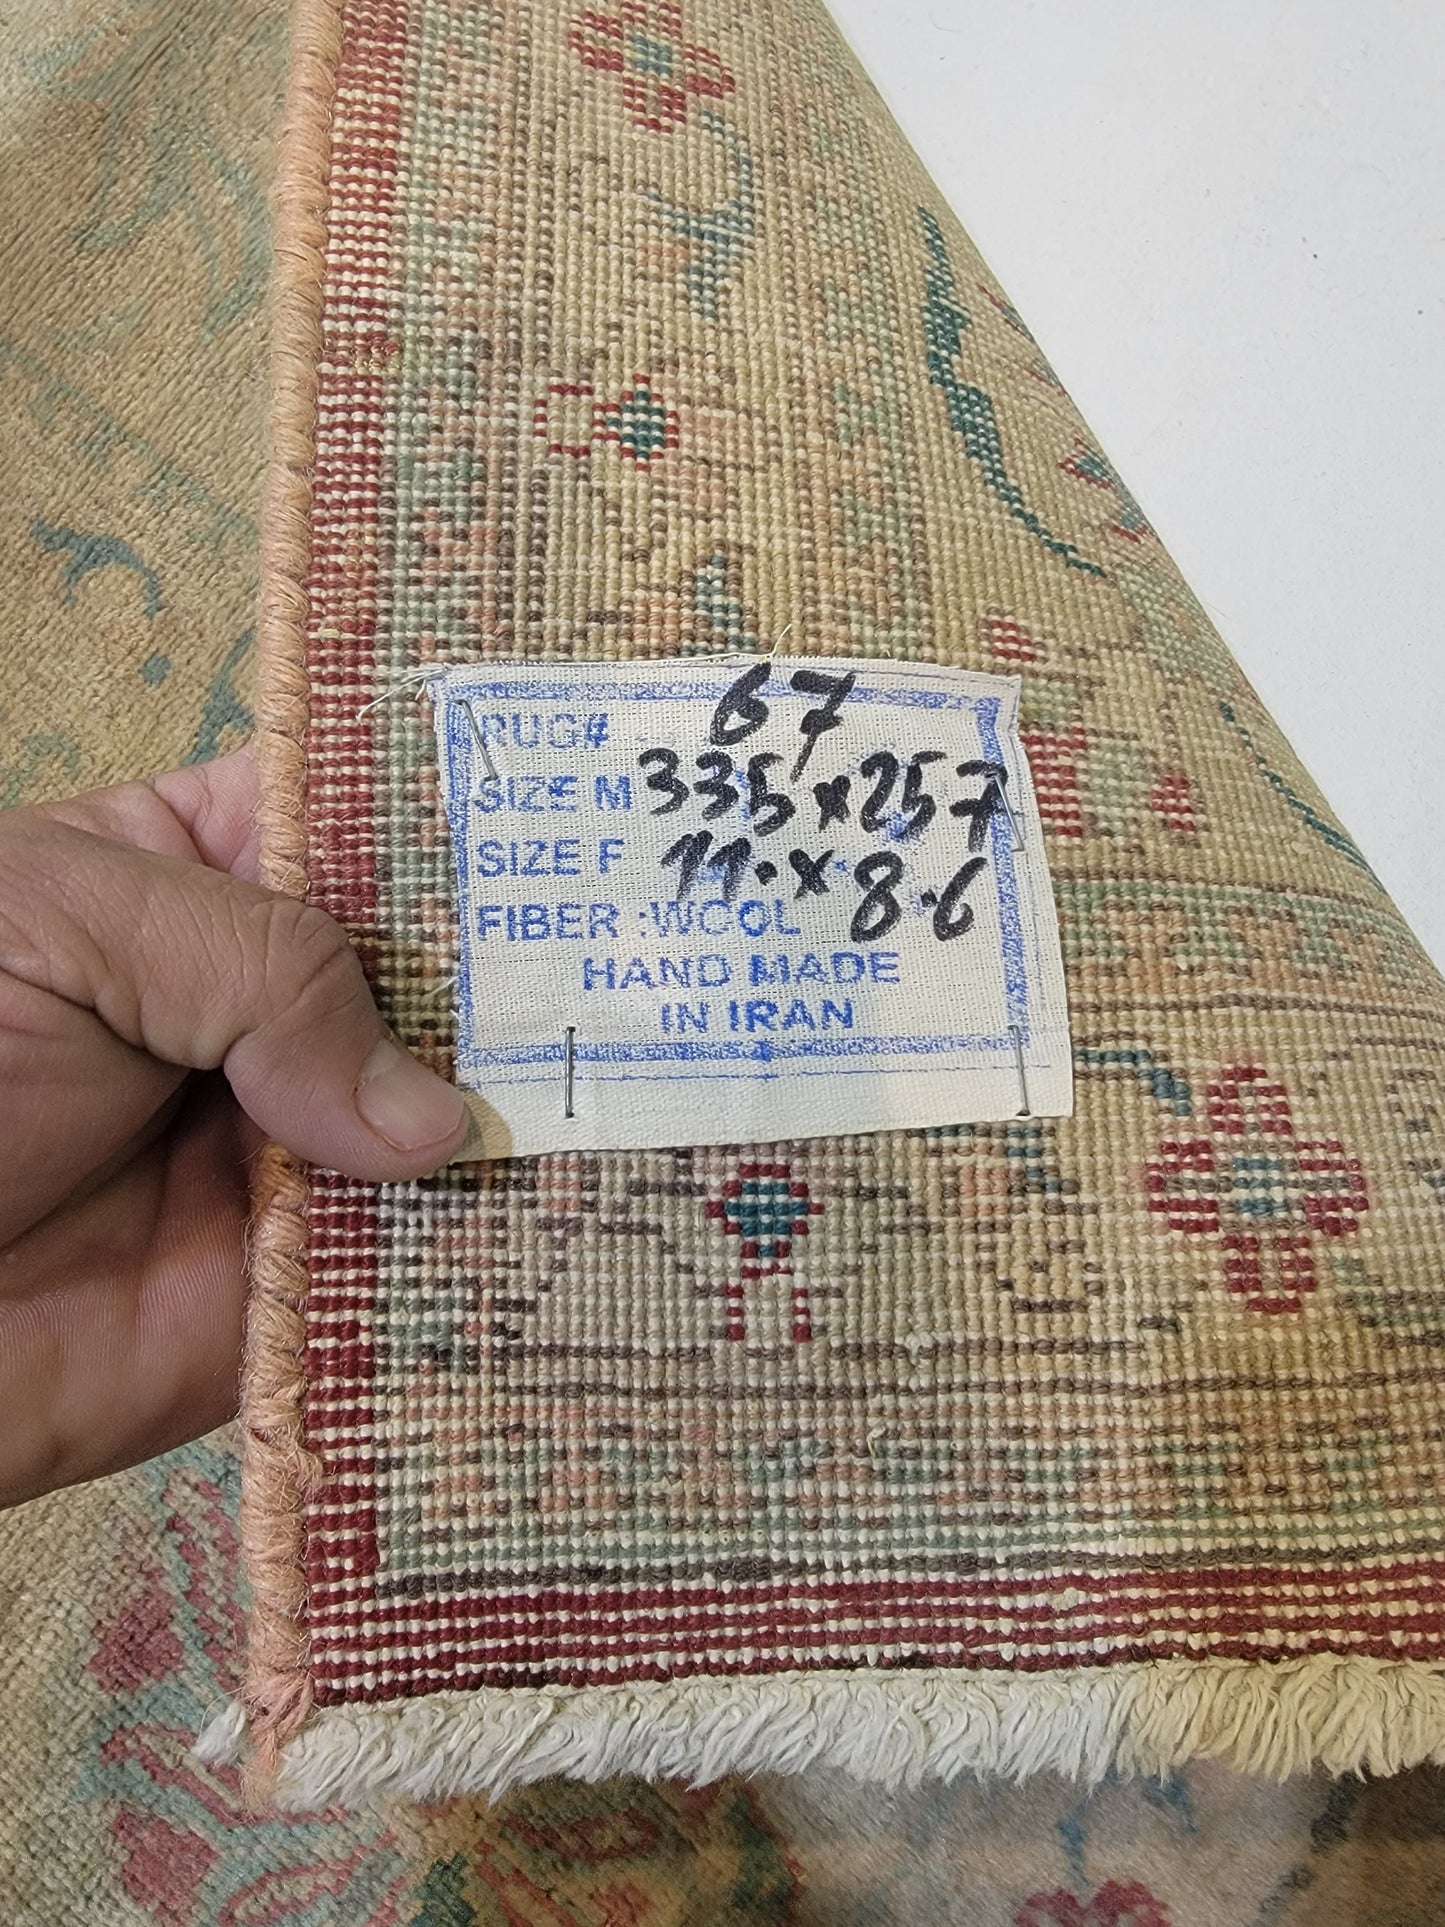 RUG# 67
SIZE M 335x257
SIZE F 11.x8.6
FIBER :WOOL
HAND MADE
IN IRAN